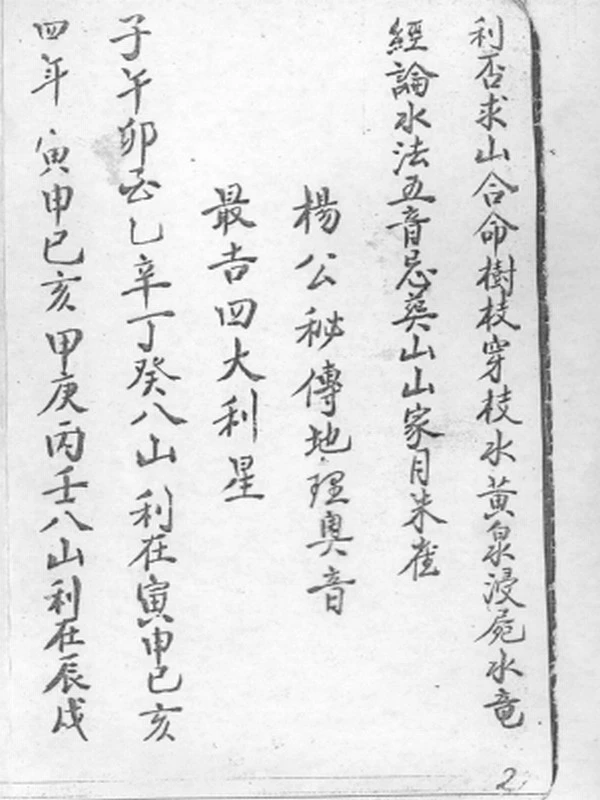 利否求山合命樹枝穿枝水黃泉浸屍水竜
經論水法五音忌葬山山家月朱雀
楊公秘傳地理奧音
最吉四大利星
子午卯酉乙辛丁癸八山利在寅申巳亥
四年寅申巳亥甲庚丙壬八山利在辰戌
2